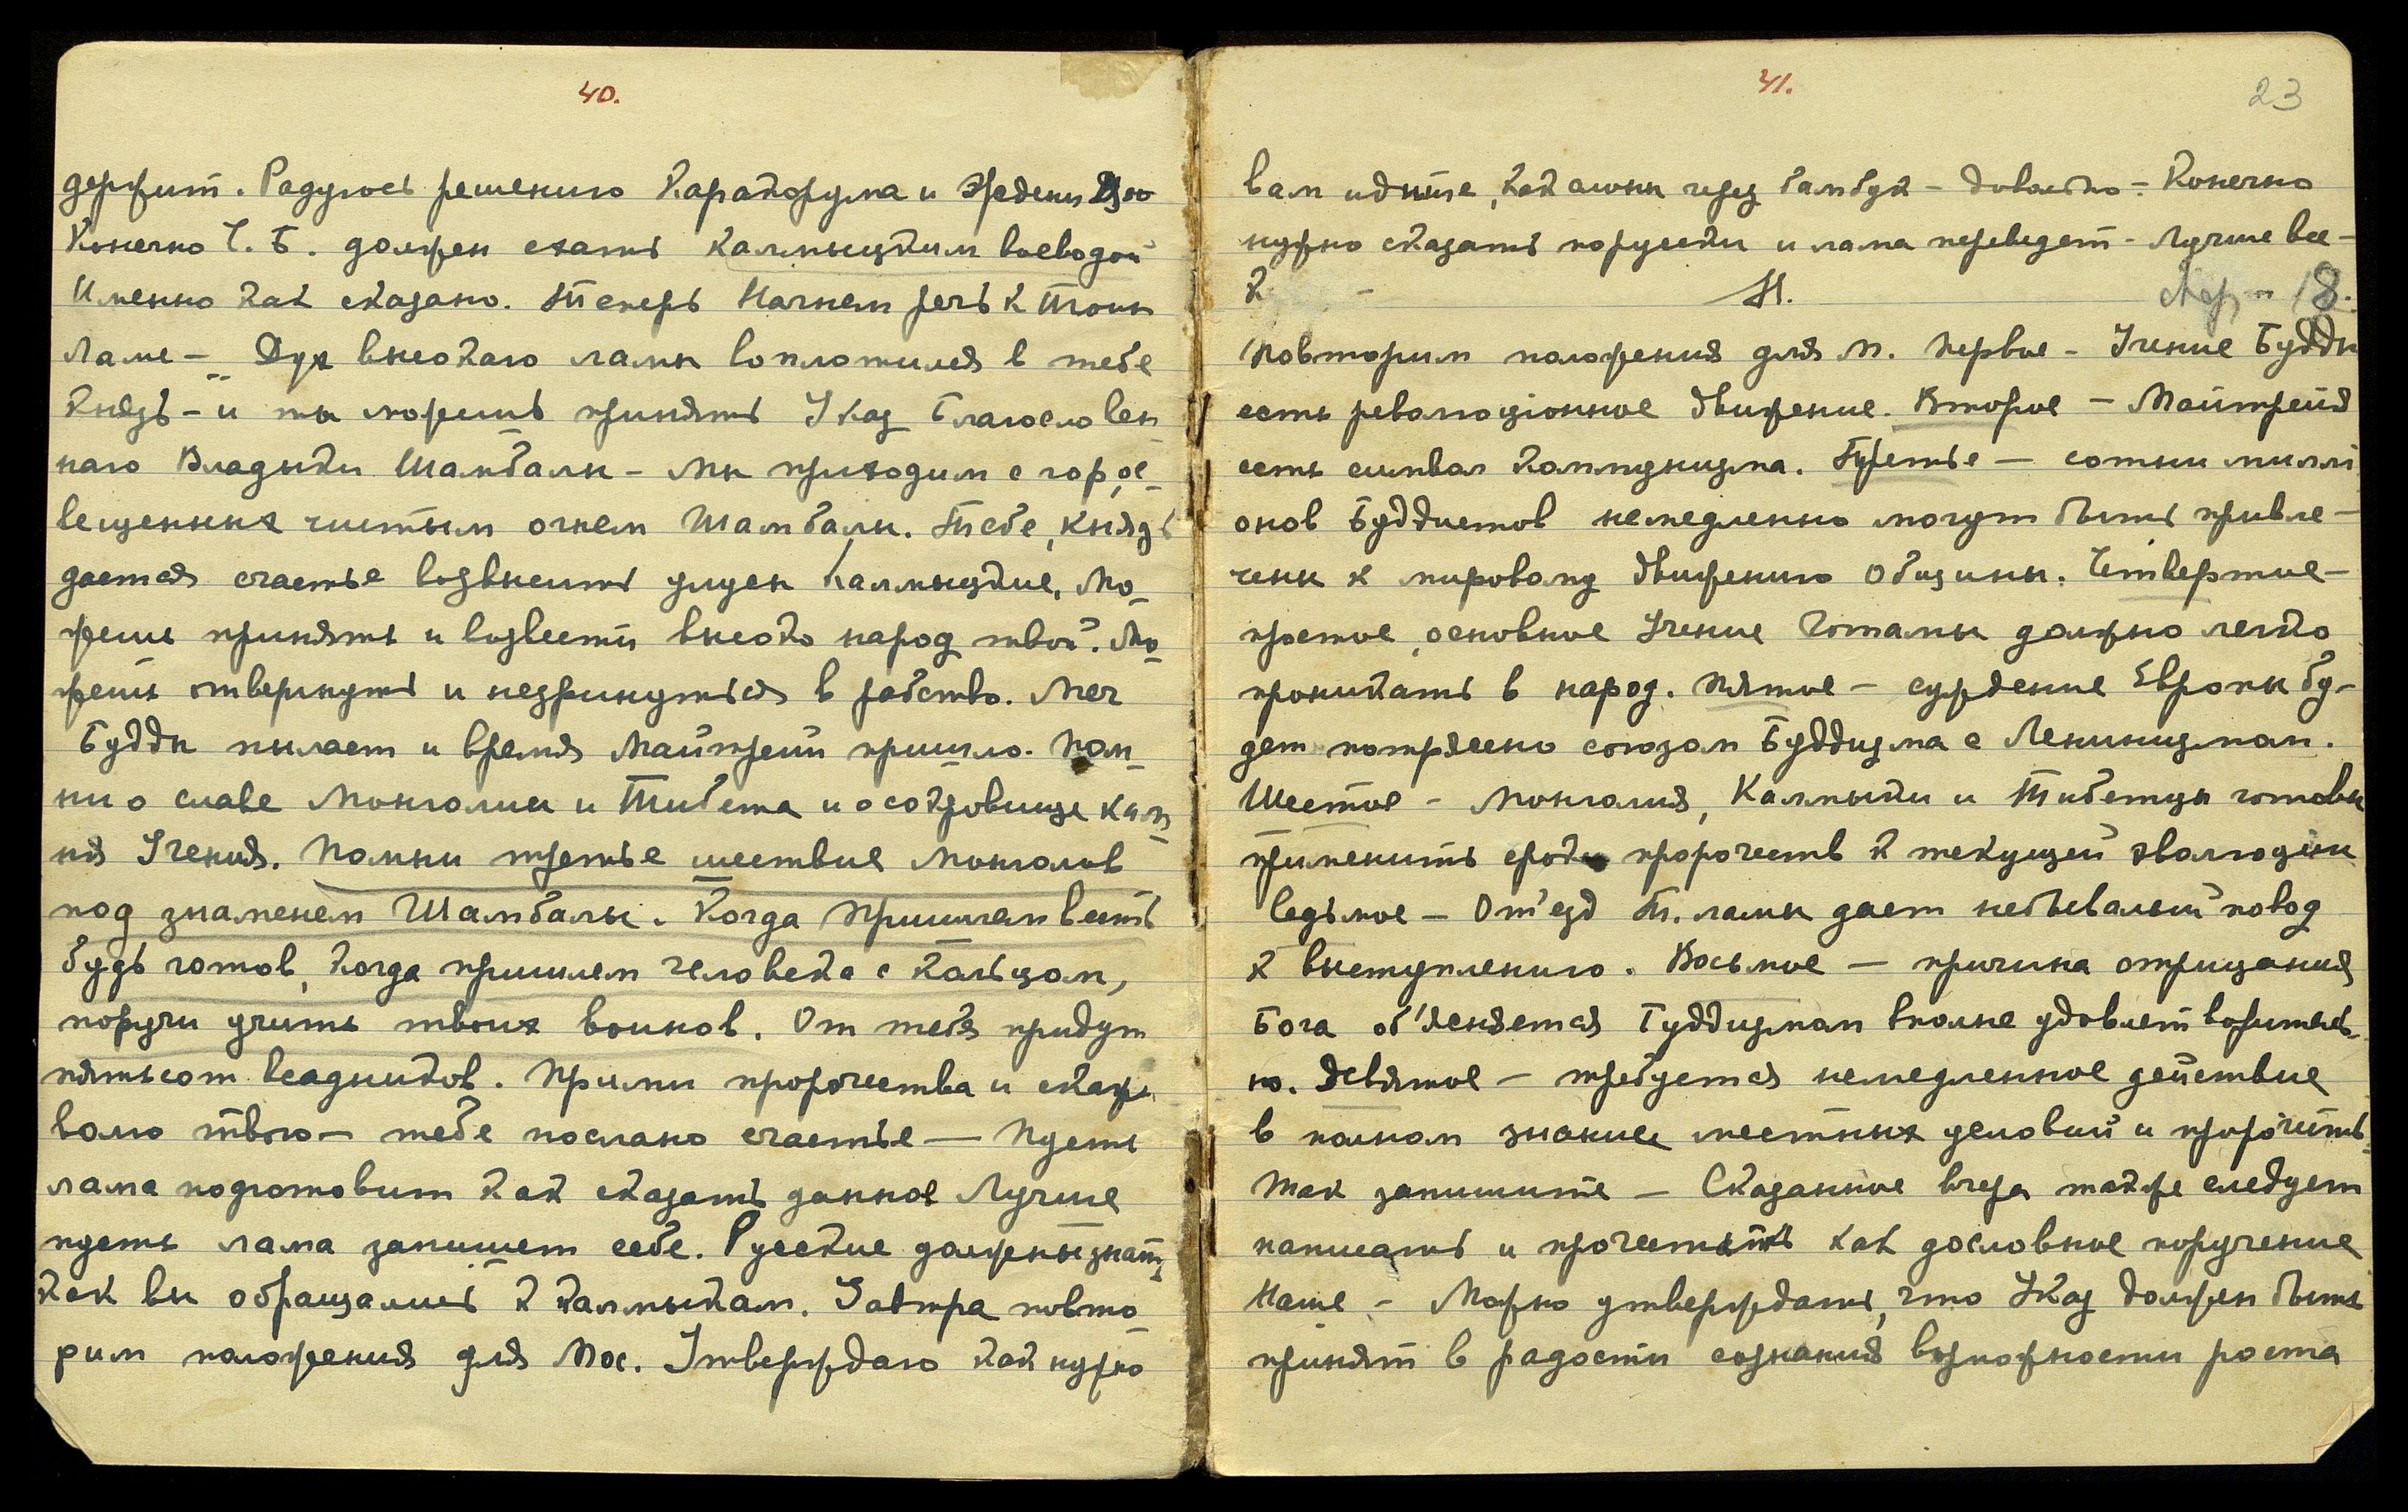 40.
держит. Радуюсь решению Каракорума и Эрдени Дзо
Конечно Ч. Б. должен ехать калмыцким воеводой
Именно как сказано. Теперь Начнем речь к Тоин
Ламе — Дух высокаго ламы воплотился в тебе
Князь — и ты можешь принять Указ Благословен
наго Владыки Шамбалы — Мы приходим с гор, ос_
вещенных чистым огнем Шамбалы. Тебе, Князь
дается счастье возвысить улусы Калмыцкие, Мо_
жешь принять и возвести высоко народ твой. Мо_
жешь отвергнуть и незринуться в рабство. Меч
Будды пылает и время Майтрейи пришло. Пом_
ни о славе Монголии и Тибета и о сокровище кам_
ня Учения. Помни третье шествие Монголов
под знаменем Шамбалы. Когда Пришлем весть
будь готов, когда пришлем человека с кольцом,
поручи учить твоих воинов. От тебя придут
пятьсот всадников. Прими пророчества и скажи
волю твою — тебе послано счастье — Пусть
лама подготовит как сказать данное Лучше
пусть лама запишет себе. Русские должны знать,
как вы обращались к калмыкам. Завтра повто_
рим положения для Мос. Утверждаю как нужно
41.
23
вам идти, как огонь через бамбук — довольно = Конечно
нужно сказать порусски и лама переведет — Лучше все —
к
18.
Повторим положения для М. Первое — Учение Будды
есть революціонное движение. Второе — Майтрейя
есть символ коммунизма. Третье — сотни милли
онов Буддистов немедленно могут быть привле —
чены к мировому движению Общины. Четвертое —
простое, основное Учение Готамы должно легко
проникать в народ. Пятое — суждение Европы бу-
дет потрясено союзом Буддизма с Ленинизмом.
Шестое — Монголия, Калмыки и Тибетцы готовы
применить сроки пророчеств к текущей эволюции
ведьмое — От'езд Т. ламы дает небывалый повод
к выступлению. Восьмое — причина отрицания
Бога об'ясняется Буддизмом вполне удовлетворитель-
но. Девятое — требуется немедленное действие
в полном знании местных условий и пророчеств
Так запишите — Сказанное вчера также следует
написать и прочесть как дословное поручение
Наше — Можно утверждать, что Указ должен быть
принят в радости сознания возможности роста